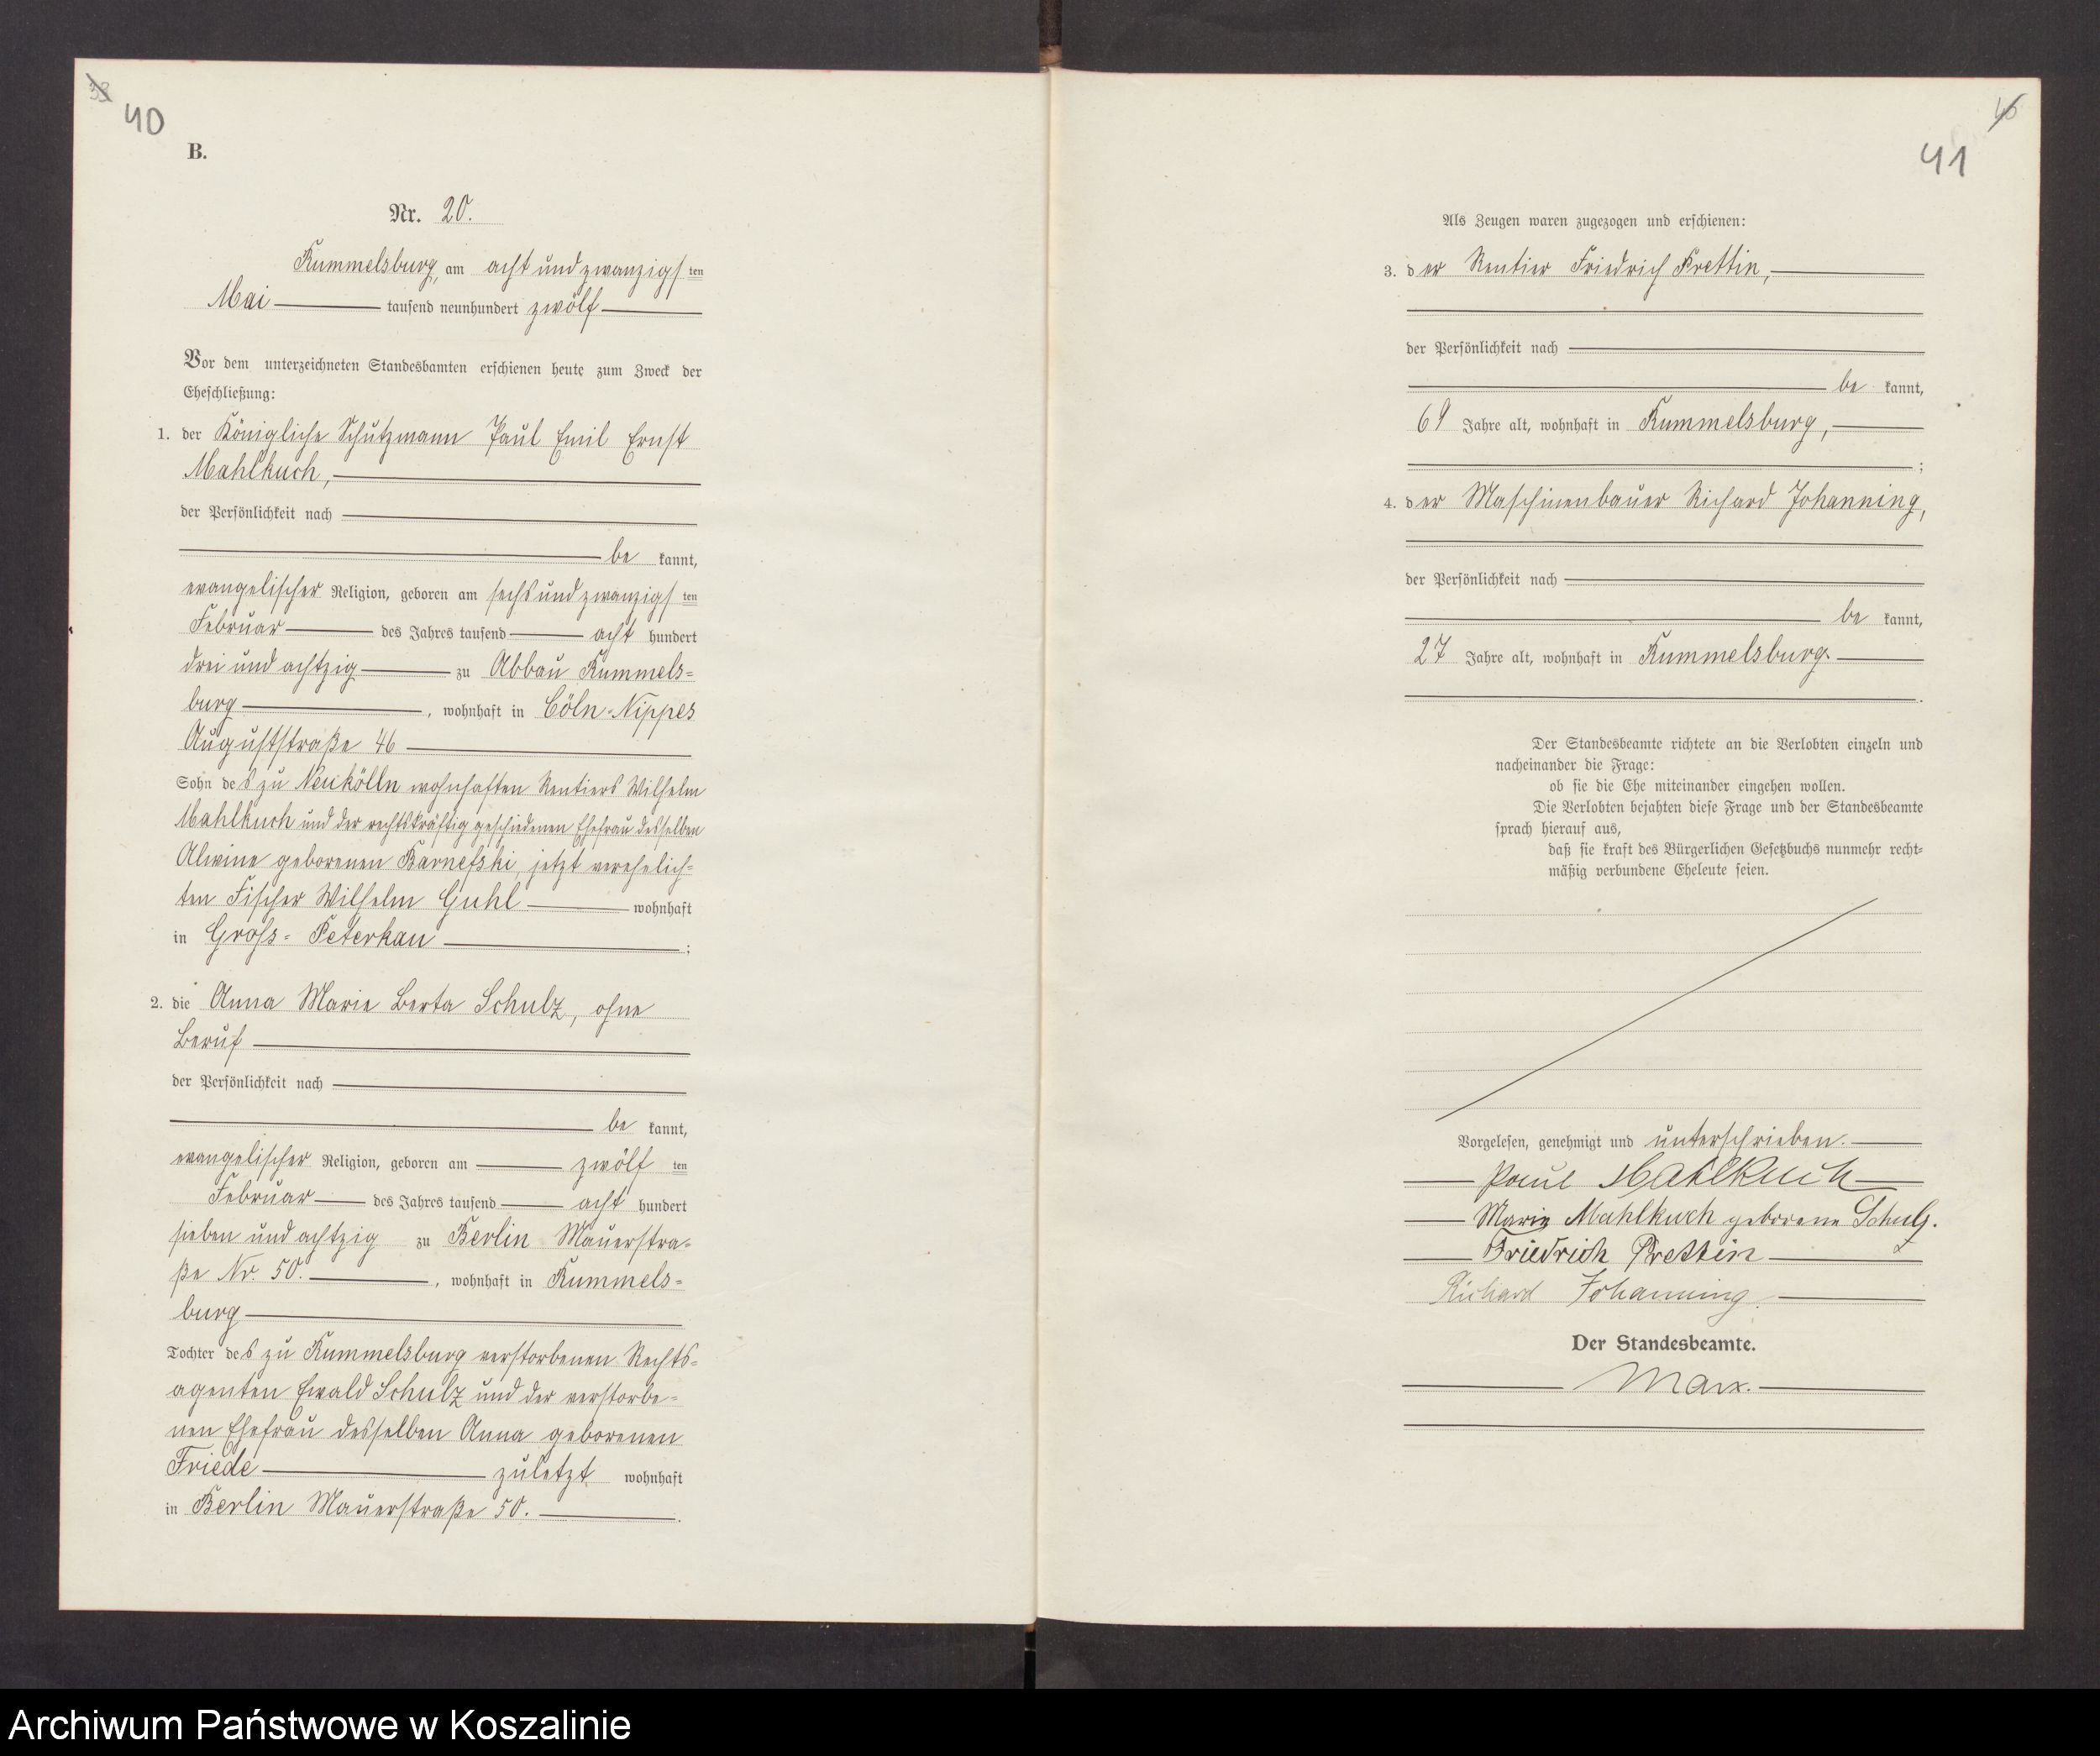 33
40
B.
Nr. 20.
Rummelsburg, am acht und zwanzigsten
Mai tausend neunhundert zwölf
Vor dem unterzeichneten Standesbamten erschienen heute zum Zweck der
Eheschließung:
1. der Königliche Schutzmann Paul Emil Ernst
Mahlkuch,
der Persönlichkeit nach
be kannt,
evangelischer Religion, geboren am sechs und zwanzigsten
Februar des Jahres tausend acht hundert
drei und achtzig zu Abbau Rummels=
burg, wohnhaft in Cöln-Nippes
Auguststraße 46
Sohn des zu Neukölln wohnhaften Rentiers Wilhelm
Mahlkuch und der rechtskräftig geschiedenen Ehefrau desselben
Alwine geborenen Karnefski, jetzt verehelich=
ten Fischer Wilhelm Guhl wohnhaft
in Gross-Peterkau;
2. die Anna Marie Berta Schulz, ohne
Beruf
der Persönlichkeit nach
be kannt,
evangelischer Religion, geboren am zwölften
Februar des Jahres tausend acht hundert
sieben und achtzig zu Berlin Mauerstra=
ße Nr. 50., wohnhaft in Rummels=
burg
Tochter des zu Rummelsburg verstorbenen Rechts=
agenten Ewald Schulz und der verstorbe=
nen Ehefrau desselben Anna geborenen
Friede zuletzt wohnhaft
in Berlin Mauerstraße 50.
41
Als Zeugen waren zugezogen und erschienen:
3. der Rentier Friedrich Prettin,
der Persönlichkeit nach
be kannt,
69 Jahre alt, wohnhaft in Rummelsburg,
;
4. der Maschinenbauer Richard Johanning,
der Persönlichkeit nach
be kannt,
27 Jahre alt, wohnhaft in Rummelsburg.
.
Der Standesbeamte richtete an die Verlobten einzeln und
nacheinander die Frage:
ob sie die Ehe miteinander eingehen wollen.
Die Verlobten bejahten diese Frage und der Standesbeamte
sprach hierauf aus,
daß sie kraft des Bürgerlichen Gesetzbuchs nunmehr recht=
mäßig verbundene Eheleute seien.
Vorgelesen, genehmigt und unterschrieben.
Paul Mahlkuch
Marie Mahlkuch geborene Schulz.
Friedrich Prettin
Richard Johanning.
Der Standesbeamte.
Marx.
Archiwum Państwowe w Koszalinie